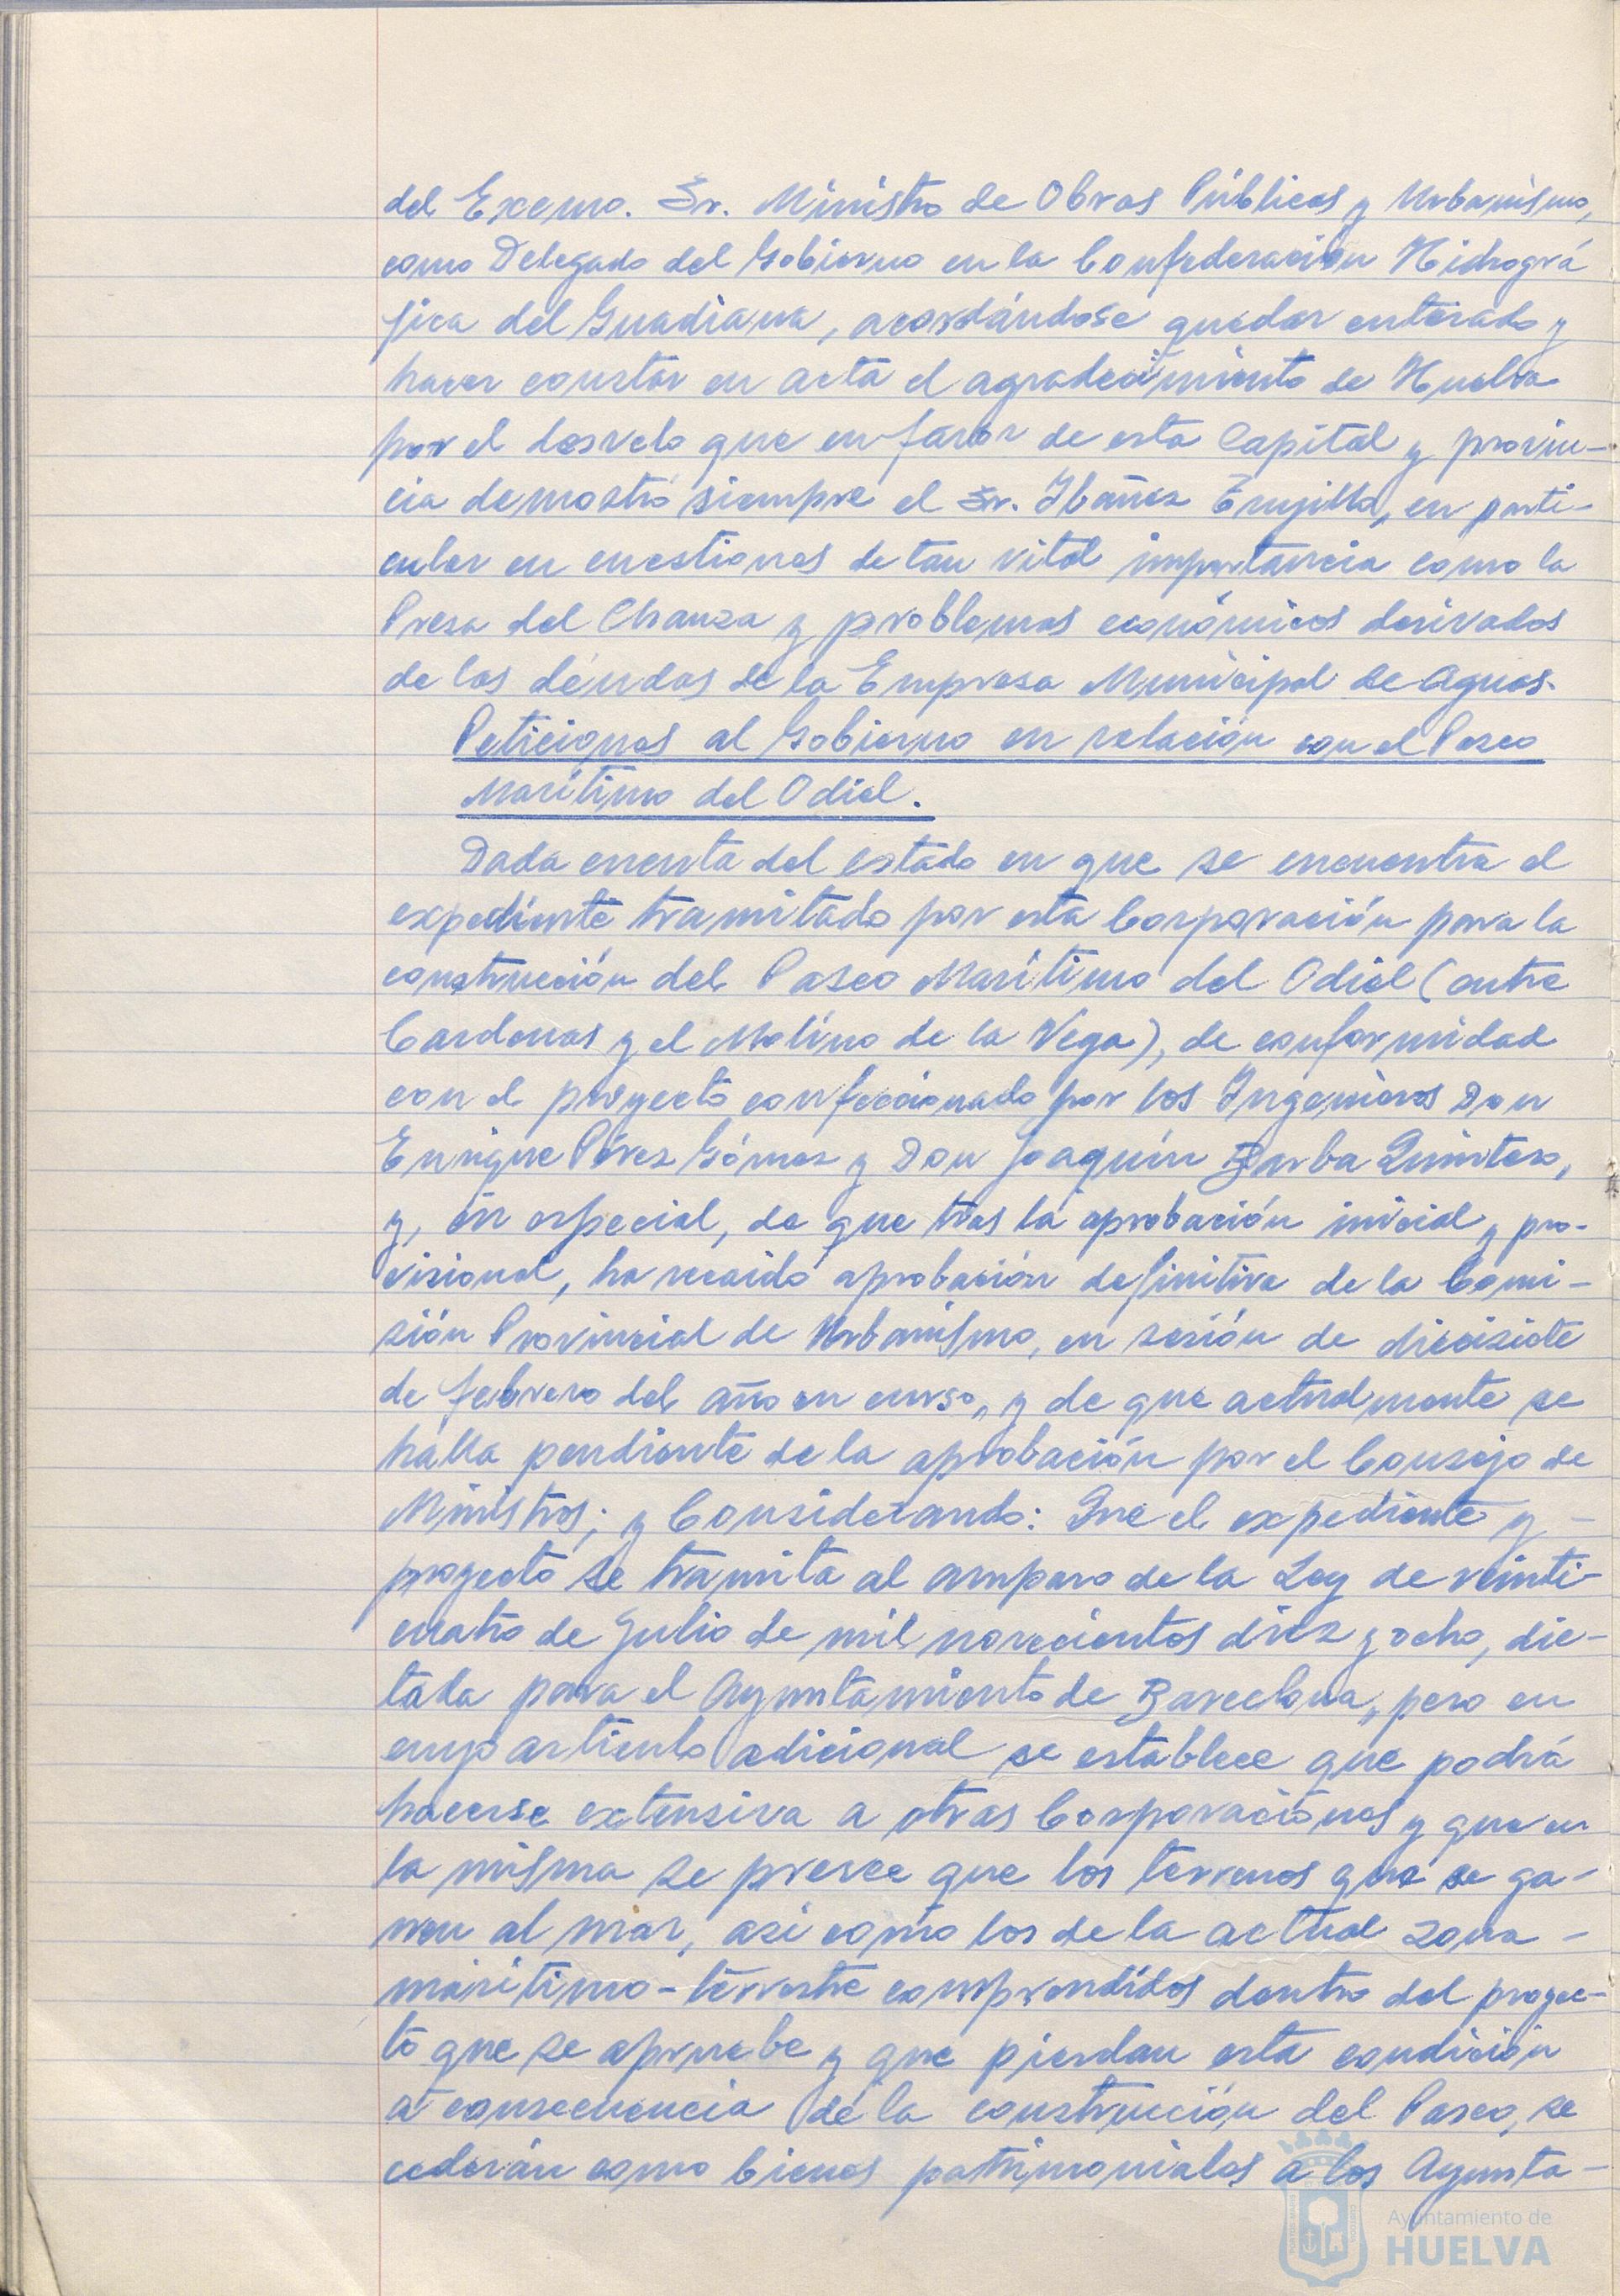 del Excmo. Sr. Ministro de Obras Públicas y Urbanismo,
como Delegado del Gobierno en la Confederación Hidrográ
fica del Guadiana, acordándose quedar enterado y
hacer constar en acta el agradecimiento de Huelva
por el desvelo que en favor de esta Capital y provin-
cia demostró siempre el Sr. Ibañez Trujillo, en parti-
cular en cuestiones de tan vital importancia como la
Presa del Chanza y problemas económicos derivados
de las deudas de la Empresa Municipal de Aguas.
Peticiones al Gobierno en relación con el Paseo
Marítimo del Odiel.
Dada cuenta del estado en que se encuentra el
expediente tramitado por esta Corporación para la
construcción del Paseo Marítimo del Odiel (entre
Cardenas y el Molino de la Vega), de conformidad
con el proyecto confeccionado por los Ingenieros Don
Enrique Pérez Gómez y Don Joaquín Barba Quintero,
y, en especial, de que tras la aprobación inicial y pro-
visional, ha recaido aprobación definitiva de la Comi-
sión Provincial de Urbanismo, en sesión de diecisiete
de febrero del año en curso, y de que actualmente se
halla pendiente de la aprobación por el Consejo de
Ministros; y Considerando: Que el expediente y -
proyecto se tramita al amparo de la Ley de veinti-
cuatro de Julio de mil novecientos diez y ocho, dic-
tada para el Ayuntamiento de Barcelona, pero en
cuyo artículo adicional se establece que podrá
hacerse extensiva a otras Corporaciones y que en
la misma se prevee que los terrenos que se ga-
nen al mar, asi como los de la actual zona -
marítimo-terrestre comprendidos dentro del proyec-
to que se apruebe y que pierdan esta condición
a consecuencia de la construcción del Paseo, se
cederán como bienes patrimoniales a los Ayunta-
Ayuntamiento de
HUELVA